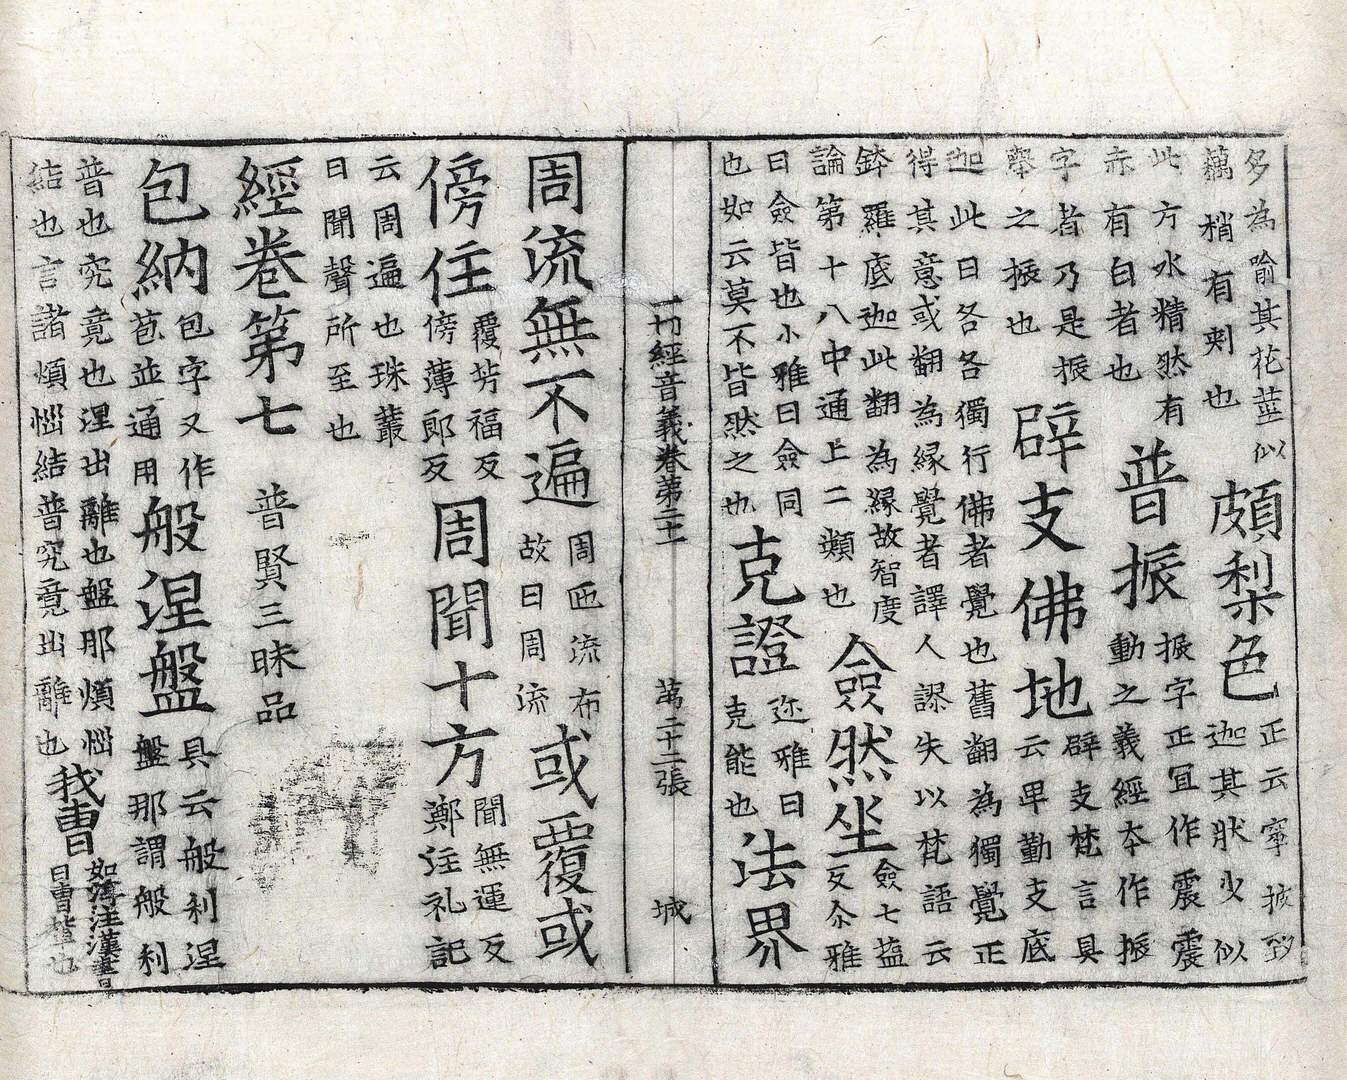 多為喻其花莖似
藕稍有刺也
頗梨色
正云窣披致
迦其狀少似
此方水精然有
赤有白者也
普振
振字正冝作震震
動之義經本作振
字者乃是振
舉之振也
辟支佛地
辟支梵言具
云畢勤支底
迦此曰各各獨行佛者覺也舊翻為獨覺正
得其意或翻為緣覺者譯人謬失以梵語云
鉢羅底迦此翻為緣故智度
論第十八中通上二類也
僉然坐
僉七葢
反尒雅
曰僉皆也小雅曰僉同
也如云莫不皆然之也
克證
迩雅曰
克能也
法界
一切經音義卷第二十一
第二十二張
城
周流無不遍
周匝流布
故曰周流
或覆或
傍住
覆芳福反
傍薄郎反
周聞十方
聞無運反
鄭注礼記
云周遍也珠叢
曰聞聲所至也
經卷第七
普賢三昧品
包納
包字又作
苞並通用
般涅盤
具云般利涅
盤那謂般利
普也究竟也涅出離也盤那煩惱
結也言諸煩惱結普究竟出離也
我曹
如淳注漢書
曰曹輩也